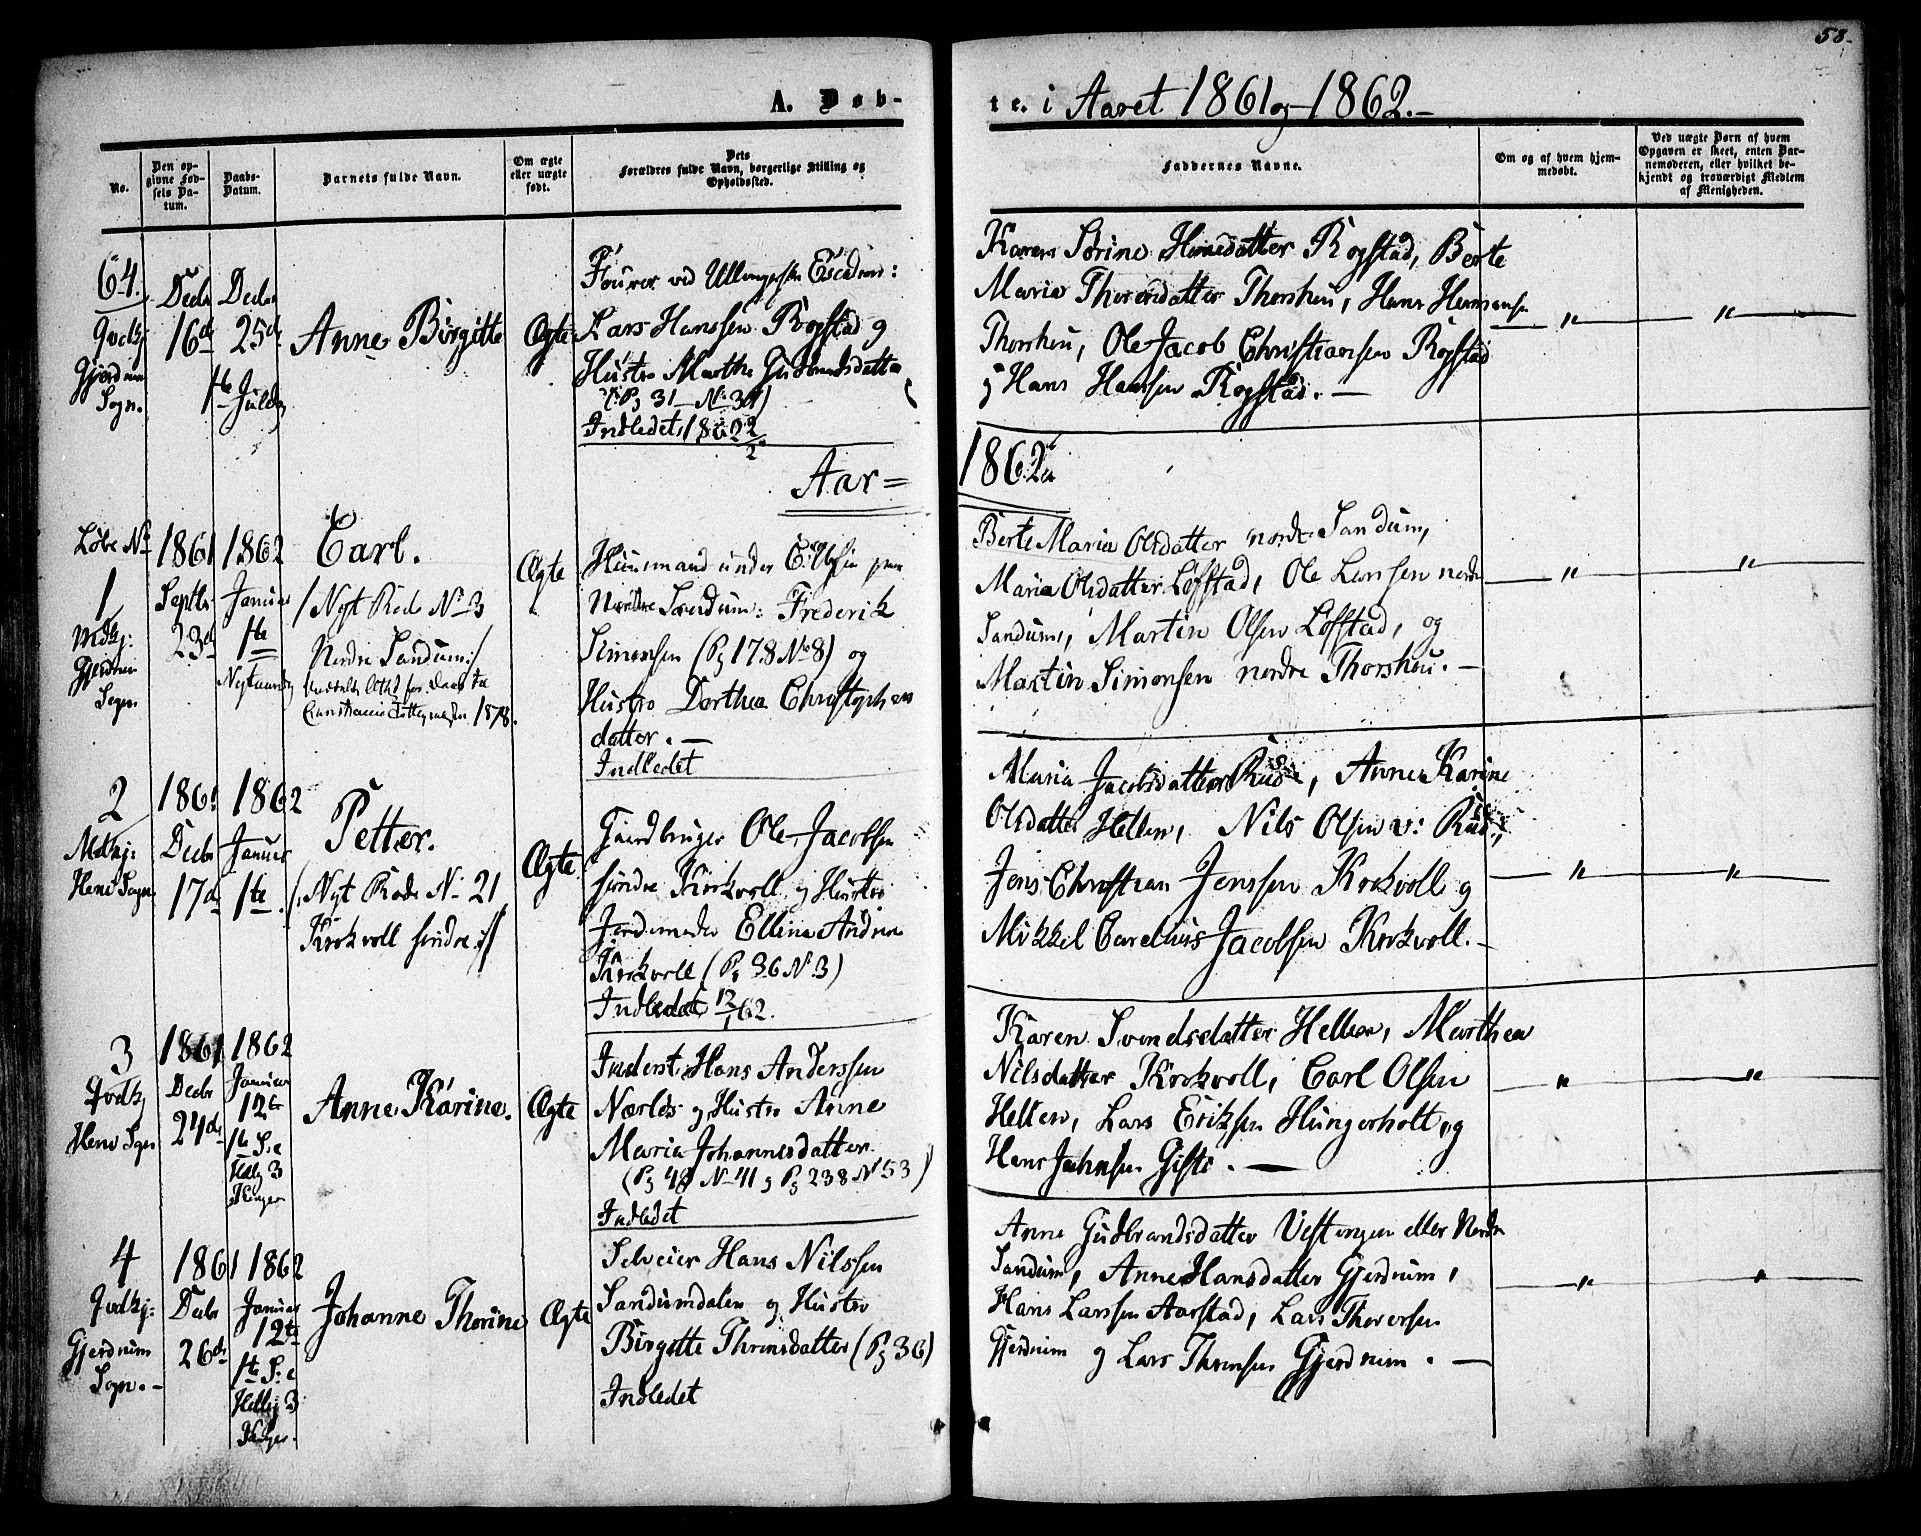 58.
A. Døb-
te. i Aaret 1861 og 1862.-
No.
Den op-
givne Fød-
sels Da-
tum.
Daabs-
Datum.
Barnets fulde Navn.
Om ægte
eller uægte
født.
Dets
Forældres fulde Navn, borgerlige Stilling og
Opholdssted.
Faddernes Navne.
Om og af hvem hjem-
medøbt.
Ved uægte Børn af hvem
Opgaven er skeet, enten Bar-
nemoderen, eller hvilket be-
kjendt og troværdigt Medlem
af Menigheden.
64.
Gjerdrum
Sogn.
Decbr
16de
Decbr
25de
1ste Juledag
Anne Birgitte
Ægte
Fourer ved Escadron:
Lars Hanssen Rogstad og
Hustro Marthe Gudbrandsdatter
(: Pg 31 No 34)
Indledet 1862 2/2
Karen Sørine Rogstad, Berte
Maria Thorersdatter Thorshou, Hans Hermansen
Thorshou, Ole Jacob Christiansen Rogstad
og Hans Hanssen Rogstad. —
" "
Aar = 1862
Løbe No
1
Gjerdrum
Sogn.
1861
Septbr
23de
1862
Januar
1ste
Nytaarsdag
Carl.
/ Nyt Rode No 3
Nordre Sandum :/
1878.
Ægte
Huusmand under
Nordre Sandum: Frederik
Simensen (Pg 178 No 8) og
Hustro Dorthea Christophers
datter. —
Indledet
Berte Maria Olsdatter nordre Sandum,
Maria Olsdatter Løfstad, Ole Larssen nordre
Sandum, Martin Olsen Løfstad, og
Martin Simensen nordre Thorshou. —
" "
2
Heni Sogn.
1861
Decbr
17de
1862
Januar
1ste
Petter.
/: Nyt Rode No 21
Krokvoll søndre :/
Ægte
Gaardbruger Ole Jacobsen
søndre Krokvoll og Hustro
Ellina Andrea
Krokvoll (Pg 36 No 3)
Indledet 12/1 62.
Maria Jacobsdatter Rud, Anne Karine
Olsdatter Hellen, Nils Olsen v: Rud,
Jens Christian Jenssen Krokvoll og
Mikkel Carelius Jacobsen Krokvoll. —
" "
3
Heni Sogn
1861
Decbr
24de
1862
Januar
12te
1ste S: e
Hellig 3
Konger
Anne Karine.
Ægte
Inderst Hans Anderssen
Nærlds og Hustro Anne
Maria Johannesdatter.
(Pg 48 No 41 og Pg 238 No 53)
Indledet
Karen Svendsdatter Hellen, Marthea
Nilsdatter Krokvoll, Carl Olsen
Hellen, Lars Eriksen Hungerholt, og
Hans Gifsts. —
" "
4
Gjerdrum
Sogn. -
1861
Decbr
26de
1862
Januar
12te
1ste S: e
Hellig 3
Konger.
Johanne Thorine
Ægte
Selveier Hans Nilssen
Sandumdalen og Hustro
Birgitte Thorersdatter (Pg 36)
Indledet
Anne Gudbrandsdatter Vestengen eller Nordre
Sandum, Anne Hansdatter Gjerdrum,
Hans Larssen Aarstad, Lars Thorersen
Gjerdrum og Lars Gjerdrum. —
" "